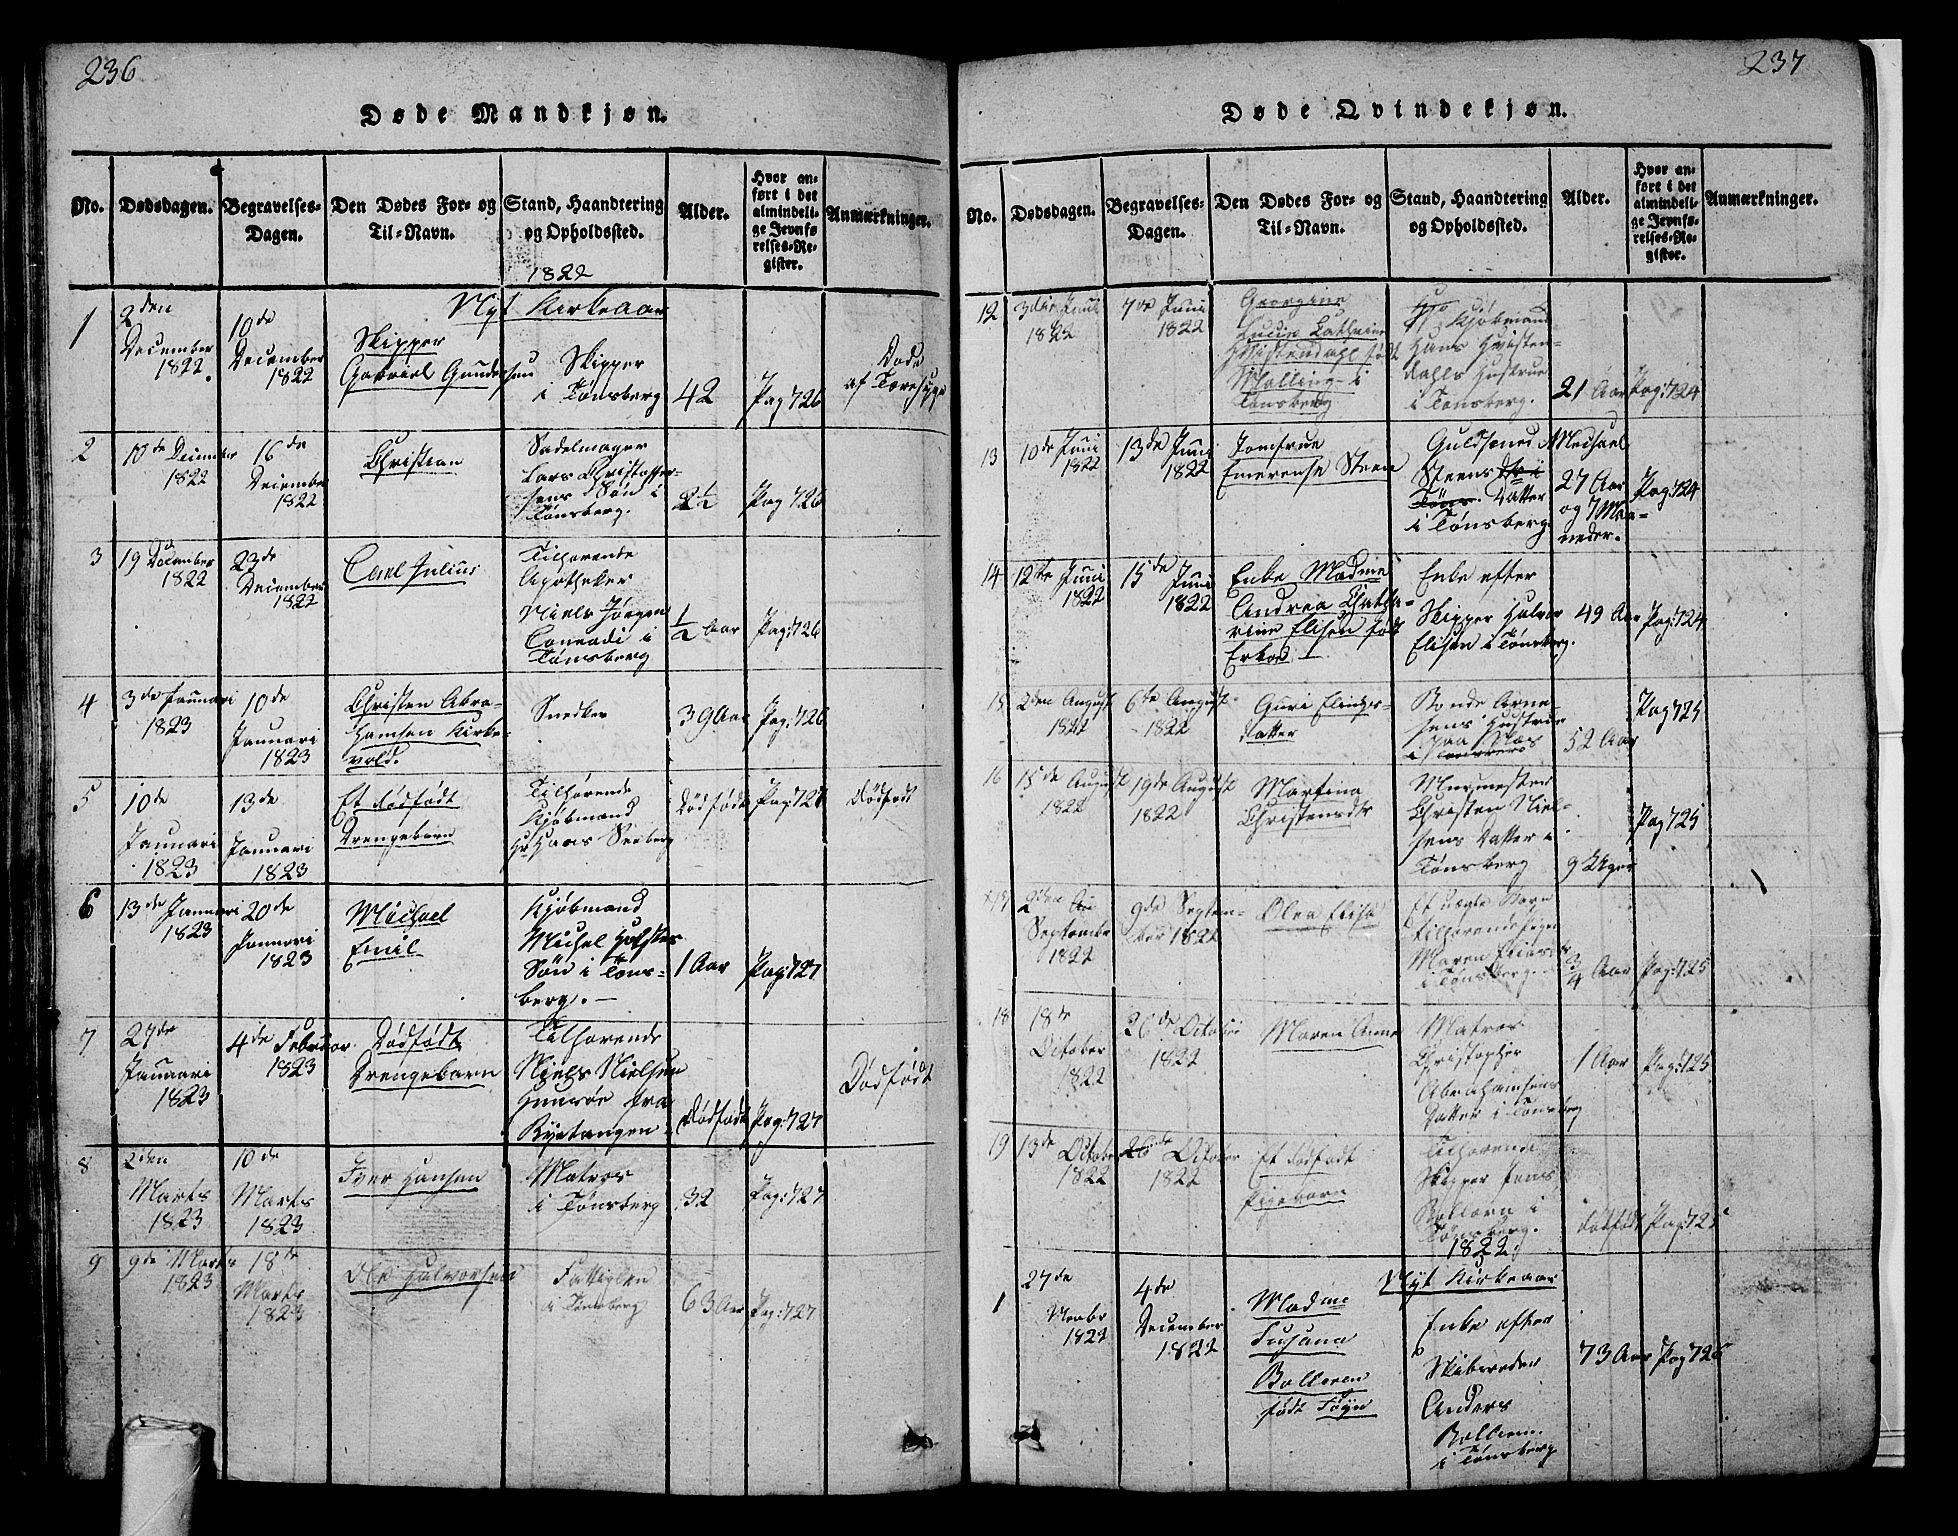 236
Døde Mandkjøn.
No.
Dødsdagen.
Begravelses-
Dagen.
Den Dødes For- og
Til-Navn.
Stand, Haandtering
og Opholdssted.
Alder.
Hvor an-
ført i det
almindeli-
ge Jevnfø-
relses-Re-
gister.
Anmærkninger.
1822
Nyt Kirkeaar
1
2den
December
1822.
10de
December
1822
Skipper
Gabriel Gundersen
Skipper
i Tønsberg
42
Pag 726
Døde
af Tæresyge
2
10de December
1822
16de
December
1822
Christian
Sadelmager
Lars Christoffer-
sens Søn i
Tønsberg.
2½
Pag 726
3
19de
December
1822
23de
December
1822
Carl Julius
Tilhørende
Apotheker
Niels Jørgen
Conradi i
Tønsberg
½ Aar
Pag:726
4
3de Januari
1823
10de
Januari
1823
Christen Abra-
hamsen Kirke-
vold.
Snedker
39 Aar
Pag:726
5
10de
Januari
1823
13de
Januari
1823
Et dødfødt
Drengebarn
Tilhørende
Kjøbmand
Hr Haas Seeberg
Dødfødt
Pag:727
dødfødt
6
13de Januari
1823
20de
Januari
1823
Michael
Emil
Kjøbmand
Michel
Søn i Tøns-
berg.
1 Aar
Pag:727
7
27de
Januari
1823
4de Februar
1823
Dødfødt
Drengebarn
Tilhørende
Niels Nielsen
fra
Dødfødt
Pag:727
Dødfødt
8
2den
Marts
1823
10de
Marts
1823
Iver Hansen
Matros
i Tønsberg
32
Pag:727
9
9de Marts
1823
18de
Marts
1823
Ole Halvorsen
Fattiglem
i Tønsberg
63 Aar
Pag:727
237
Døde Qvindekjøn.
No.
Dødsdagen.
Begravelses-
Dagen.
Den Dødes For- og
Til-Navn.
Stand, Haandtering
og Opholdssted.
Alder.
Hvor an-
ført i det
almindeli-
ge Jevnfø-
relses-Re-
gister.
Anmærkninger.
12
3die Juni
1822
7de Juni
1822
Georgine
Lucie Cathrine
Hvistendahl født
Malling i
Tønsberg
Kjøbmand
Hans Hvisten-
dahls Hustrue
i Tønsberg.
21 Aar
Pag:724
13
10de Juni
1822
13de Juni
1822
Jomfrue
Emerense Steen
Guldsmed Michael
Steens
Tøns. Datter
i Tønsberg
27 Aar
og 7 Maa-
neder.
Pag:724
14
12te Juni
1822
15de
Juni
1822
Enke Madme
Andrea Catha-
rine Elisen født
Enke efter
Skipper Halvor
Elisen i Tønsberg.
49 Aar
Pag:724
15
2den August
1822
6te August
1822
Guri Elings-
datter
Bonde Arne-
sens Hustrue
paa Næs
52 Aar
Pag 725
16
15de August
1822
19de August
1822
Martina
Christensdtr
Muurmester
Christen Niel-
sens Datter i
Tønsberg
9 Uger
Pag 725
17
2den
September
1822
9de Septem-
ber 1822
Olea Elise
Et uægte Barn
tilhørende Pigen
Maren
i Tønsberg.
¾ Aar
Pag:725
18
18de
October
1822
26de October
1822
Maren Anne
Matros
Christopher
Abrahamsens
Datter i Tønsberg
1 Aar
Pag:725
19
13de October
1822
26de October
1822
Et dødfødt
Pigebarn
Tilhørende
Skipper Jens
Bolleren i
Tønsberg.
dødfødt
Pag:725
1822.
Nyt Kirkeaar
1
27de
Novbr
1822
4de
December
1822
Madme
Susana
Bolleren
født Føyn
Enke efter
Skibsreder
Anders
Bolleren
i Tønsberg
73 Aar
Pag 726